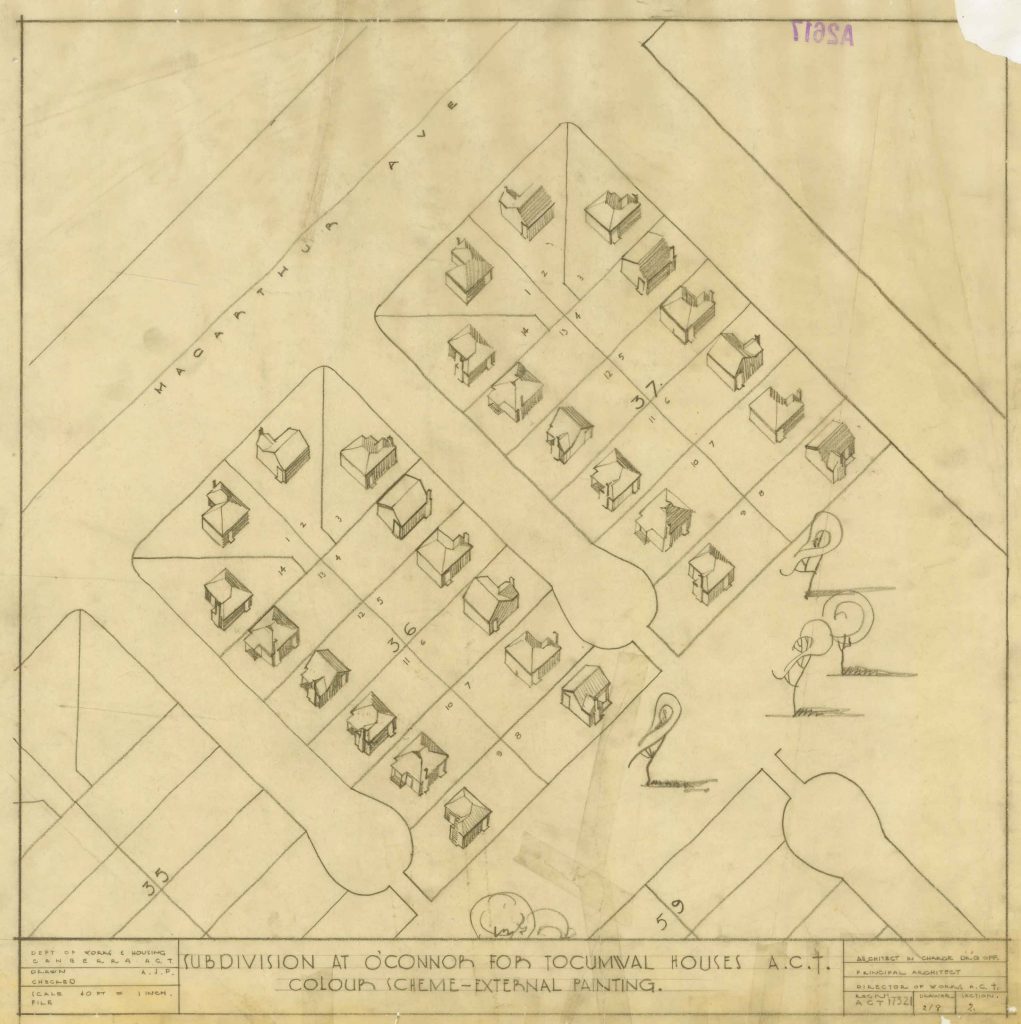 A2617
MACARTHUR AVE
1
2
3
4
5
6
7
8
9
10
11
12
13
14
37
1
2
3
4
5
6
7
8
9
10
11
12
13
14
36
35
59
DEPT OF WORKS & HOUSING
CANBERRA A.C.T.
DRAWN A.J.P.
CHECKED
SCALE 40 FT = 1 INCH.
FILE
SUBDIVISION AT O'CONNOR FOR TOCUMWAL HOUSES A.C.T.
COLOUR SCHEME–EXTERNAL PAINTING.
ARCHITECT IN CHARGE DR.G OFF.
PRINCIPAL ARCHITECT
DIRECTOR OF WORKS A.C.T.
DRAWER SECTION
ACT 17321 2/8 2.